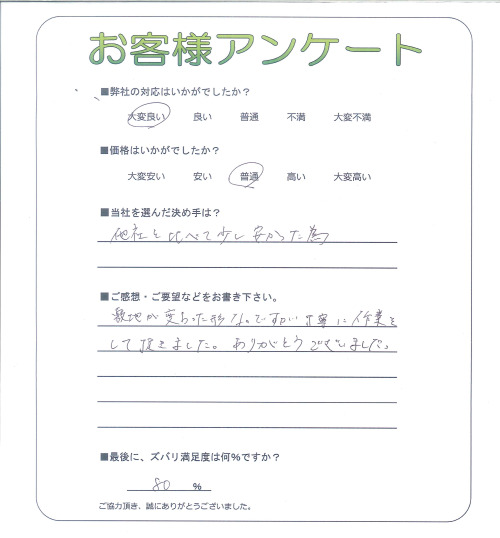 お客様アンケート
■弊社の対応はいかがでしたか？
大変良い 良い 普通 不満 大変不満
■価格はいかがでしたか？
大変安い 安い 普通 高い 大変高い
■当社を選んだ決め手は？
他社と比べて少し安かった為
■ご感想・ご要望などをお書き下さい。
敷地が変わった形なのですが丁寧に作業を
して頂きました。ありがとうございました。
■最後に、ズバリ満足度は何%ですか？
80 %
ご協力頂き、誠にありがとうございました。